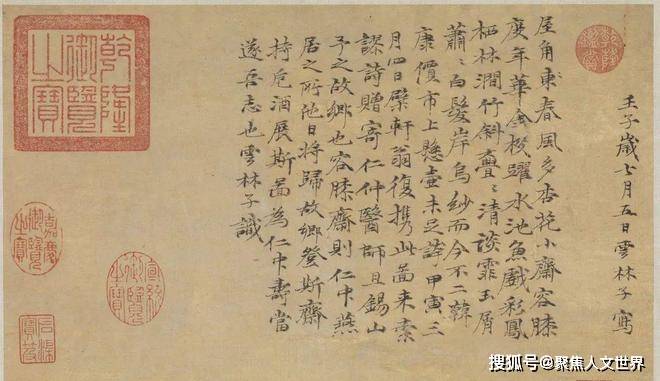 壬子歲七月五日雲林子寫
屋角東春風多杏花小齋容膝
度年華金梭躍水池魚戲彩鳳
栖林澗竹斜亹〻清談霏玉屑
蕭〻白髮岸烏紗而今不二韓
康價市上懸壺未足誇甲寅三
月四日檗軒翁復携此啚来索
謬詩贈寄仁仲醫師且錫山
予之故鄉也容膝齋則仁仲燕
居之所他日將歸故鄉登斯齋
持卮酒展斯啚為仁仲壽當
遂吾志也雲林子識
乾隆御覽之寶
乾隆鑑賞
嘉慶御覽之寶
宣統御覽之寶
石渠寶笈
搜狐号@聚焦人文世界